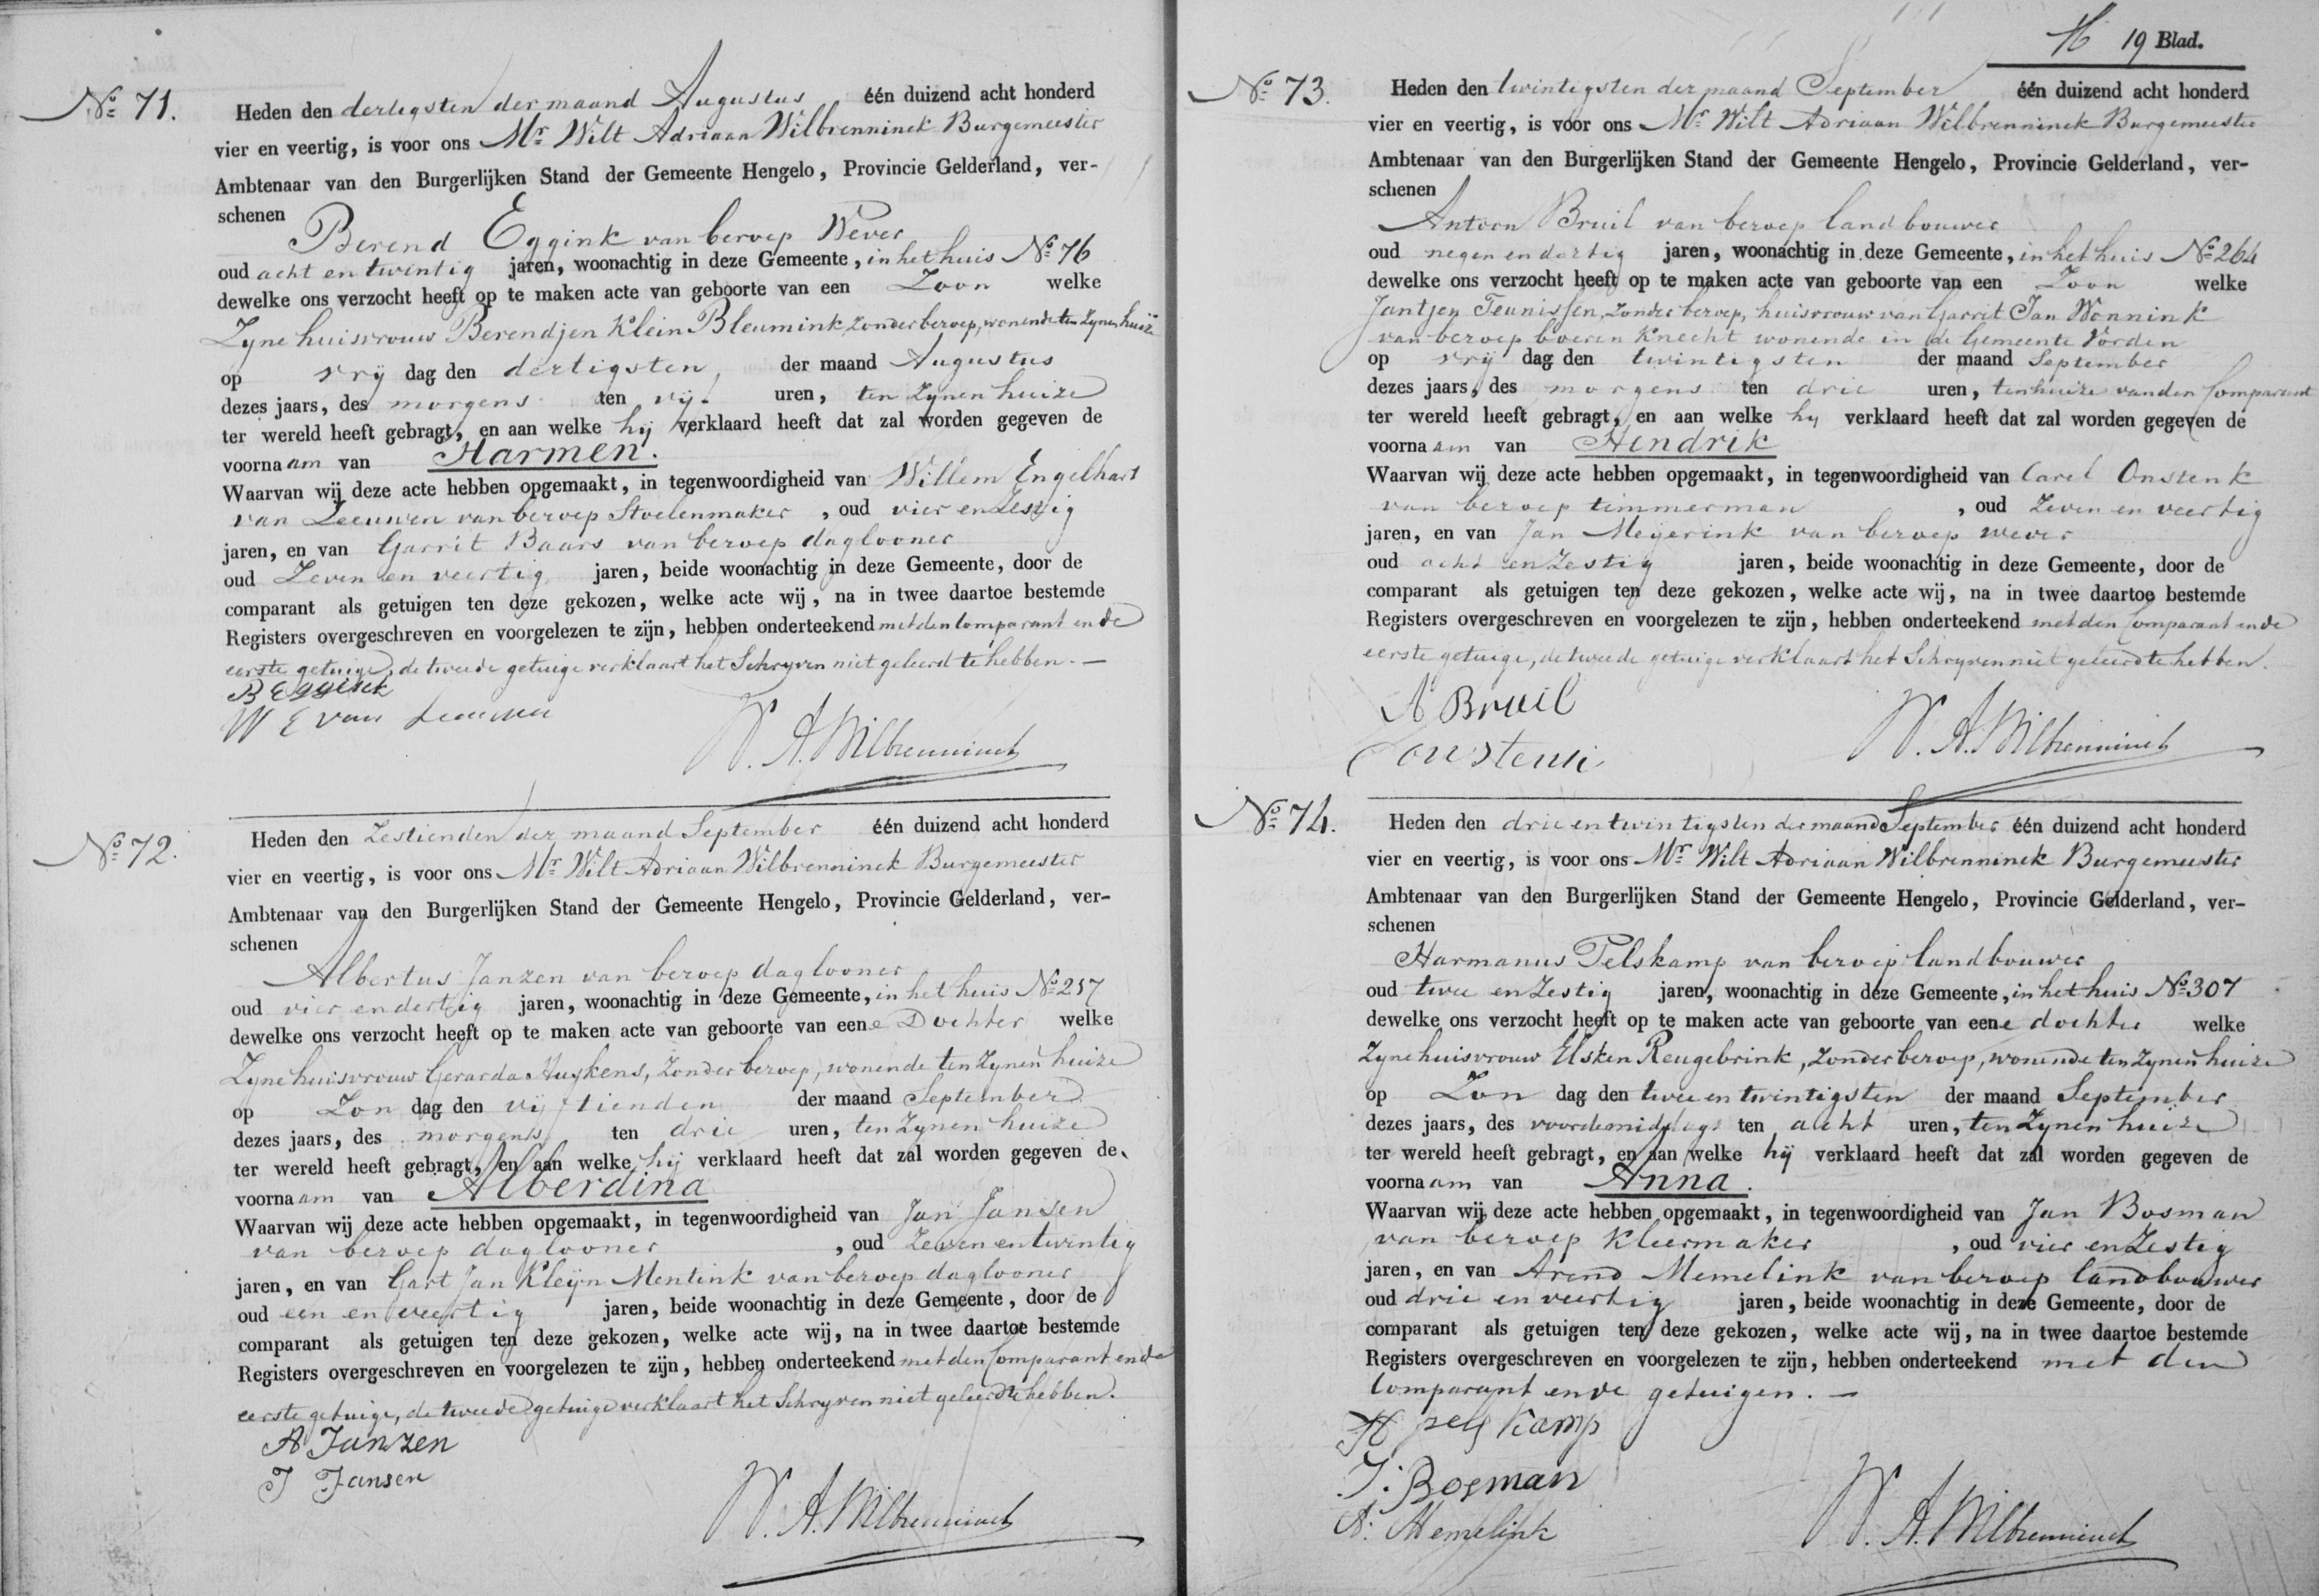 No 71.
Heden den dertigsten der maand Augustus één duizend acht honderd
vier en veertig, is voor ons Mr Wilt Adriaan Wilbrenninck Burgemeester
Ambtenaar van den Burgerlijken Stand der Gemeente Hengelo, Provincie Gelderland, ver-
schenen
Berend Eggink van beroep Wever
oud acht en twintig jaren, woonachtig in deze Gemeente, in het huis No 76
dewelke ons verzocht heeft op te maken acte van geboorte van een Zoon welke
Zyne huisvrouw Berendjen Klein Bleumink, Zonder beroep, wonende ten Zynen huize
op vrij dag den dertigsten, der maand Augustus
dezes jaars, des morgens ten vijf uren, ten Zynen huize
ter wereld heeft gebragt, en aan welke hij verklaard heeft dat zal worden gegeven de
voornaam van Harmen.
Waarvan wij deze acte hebben opgemaakt, in tegenwoordigheid van Willem Engelhart
van Leeuwen van beroep Stoelenmaker, oud vier en Zestig
jaren, en van Garrit Baars van beroep daglooner
oud Zeven en veertig jaren, beide woonachtig in deze Gemeente, door de
comparant als getuigen ten deze gekozen, welke acte wij, na in twee daartoe bestemde
Registers overgeschreven en voorgelezen te zijn, hebben onderteekend met den Comparant en de
eerste getuige, de tweede getuige verklaart het Schryven niet geleerd te hebben. —
B Eggink
W E van Leeuwen
W. A. Wilbrenninck
No 72.
Heden den Zestienden der maand September één duizend acht honderd
vier en veertig, is voor ons Mr Wilt Adriaan Wilbrenninck Burgemeester
Ambtenaar van den Burgerlijken Stand der Gemeente Hengelo, Provincie Gelderland, ver-
schenen
Albertus Janzen van beroep daglooner
oud vier en dertig jaren, woonachtig in deze Gemeente, in het huis No 257
dewelke ons verzocht heeft op te maken acte van geboorte van eene Dochter welke
Zyne huisvrouw Gerarda Huykens, Zonder beroep, wonende ten Zynen huize
op Zon dag den vijftienden der maand September
dezes jaars, des morgens ten drie uren, ten Zynen huize
ter wereld heeft gebragt, en aan welke hij verklaard heeft dat zal worden gegeven de
voornaam van Alberdina
Waarvan wij deze acte hebben opgemaakt, in tegenwoordigheid van Jan Jansen
van beroep daglooner, oud Zeven en twintig
jaren, en van Gart Jan Kleijn Mentink van beroep daglooner
oud een en veertig jaren, beide woonachtig in deze Gemeente, door de
comparant als getuigen ten deze gekozen, welke acte wij, na in twee daartoe bestemde
Registers overgeschreven en voorgelezen te zijn, hebben onderteekend met den Comparant en de
eerste getuige, de tweede getuige verklaart het Schryven niet geleerd te hebben.
A Janzen
J Jansen
W. A. Wilbrenninck
19 Blad.
No 73.
Heden den twintigsten der maand September één duizend acht honderd
vier en veertig, is voor ons Mr Wilt Adriaan Wilbrenninck Burgemeester
Ambtenaar van den Burgerlijken Stand der Gemeente Hengelo, Provincie Gelderland, ver-
schenen
Antoon Bruil van beroep landbouwer
oud negen en dertig jaren, woonachtig in deze Gemeente, in het huis No 264
dewelke ons verzocht heeft op te maken acte van geboorte van een Zoon welke
Jantjen Teunissen, Zonder beroep, huisvrouw van Garrit Jan Wonnink
van beroep boeren Knecht wonende in de Gemeente Vorden
op vrij dag den twintigsten der maand September
dezes jaars, des morgens ten drie uren, ten huize van den Comparant
ter wereld heeft gebragt, en aan welke hy verklaard heeft dat zal worden gegeven de
voornaam van Hendrik
Waarvan wij deze acte hebben opgemaakt, in tegenwoordigheid van Carel Onstenk
van beroep timmerman, oud Zeven en veertig
jaren, en van Jan Meyerink van beroep wever
oud acht en Zestig jaren, beide woonachtig in deze Gemeente, door de
comparant als getuigen ten deze gekozen, welke acte wij, na in twee daartoe bestemde
Registers overgeschreven en voorgelezen te zijn, hebben onderteekend met den Comparant en de
eerste getuige, de tweede getuige verklaart het Schryven niet geleerd te hebben.
A Bruil
W. A. Wilbrenninck
No 74.
Heden den drie en twintigsten der maand September één duizend acht honderd
vier en veertig, is voor ons Mr Wilt Adriaan Wilbrenninck Burgemeester
Ambtenaar van den Burgerlijken Stand der Gemeente Hengelo, Provincie Gelderland, ver-
schenen
Harmanus Pelskamp van beroep landbouwer
oud twee en Zestig jaren, woonachtig in deze Gemeente, in het huis No 307
dewelke ons verzocht heeft op te maken acte van geboorte van eene dochter welke
Zyne huisvrouw Elsken Reugebrink, Zonder beroep, wonende ten Zynen huize
op Zon dag den twee en twintigsten der maand September
dezes jaars, des voordemiddags ten acht uren, ten Zynen huize
ter wereld heeft gebragt, en aan welke hij verklaard heeft dat zal worden gegeven de
voornaam van Anna.
Waarvan wij deze acte hebben opgemaakt, in tegenwoordigheid van Jan Bosman
van beroep Kleermaker, oud vier en Zestig
jaren, en van Arend Memelink van beroep landbouwer
oud drie en veertig jaren, beide woonachtig in deze Gemeente, door de
comparant als getuigen ten deze gekozen, welke acte wij, na in twee daartoe bestemde
Registers overgeschreven en voorgelezen te zijn, hebben onderteekend met den
Comparant en de getuigen. —
H pels kamp
J: Bosman
A: Memelink
W. A. Wilbrenninck